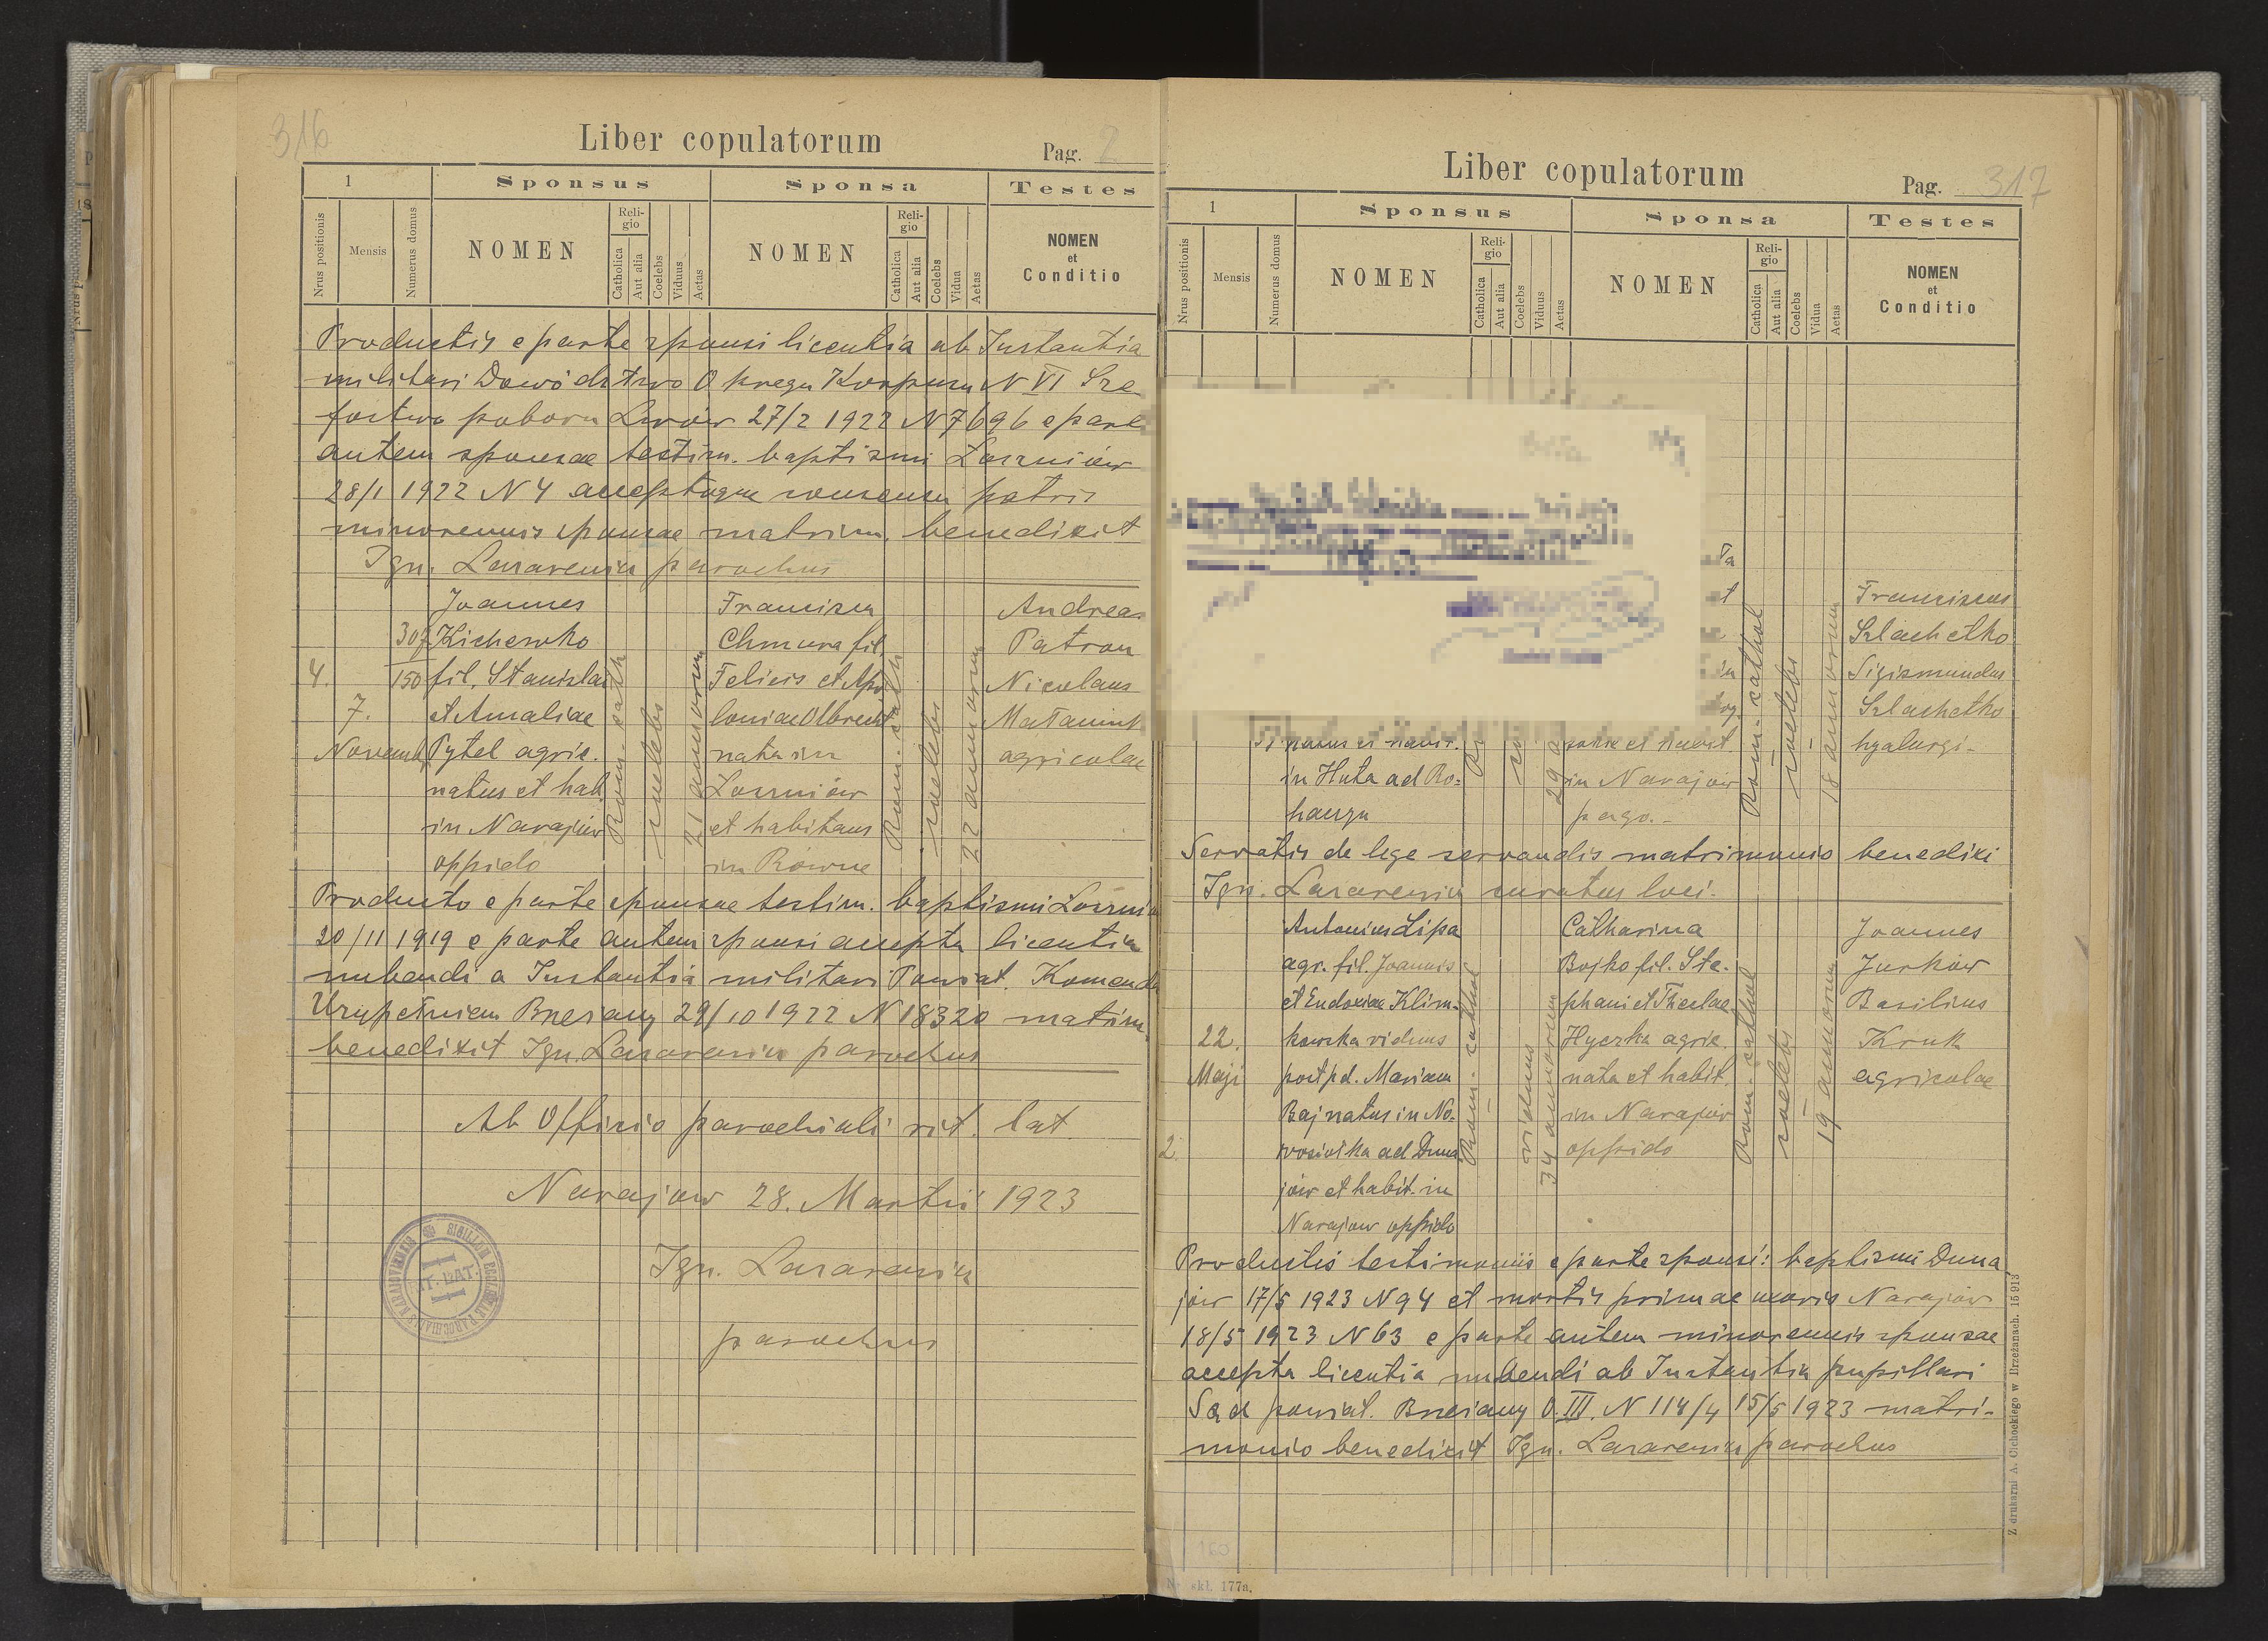 316
Liber copulatorum
Pag. 2
1
Sponsus
Sponsa
Testes
Nrus positionis
Mensis
Numerus domus
NOMEN
Reli-
gio
Catholica
Aut alia
Coelebs
Viduus
Aetas
NOMEN
Reli-
gio
Catholica
Aut alia
Coelebs
Vidua
Aetas
NOMEN
et
Conditio
Productis e parte sponsi licentia ab Instantia
militari Dowództwo Okręgu Korpusu N VI Sze
fostwo poboru Lwów 27/2 1922 N 7696 e parte
autem sponsae testim. baptismi
28/1 1922 N 4 acceptoque consensu patris
minorennis sponsae matrim. benedixit
Ign. parochus
4.
7.
Novemb.
307
150
Joannes
fil. Stanislai
et Amaliae
Pytel agric.
natus et hab.
in Narajów
oppido
Rom. cath
coelebs
21 annorum
Francisca
Chmura fil.
Felicis et Apo
loniae Olbrecht
nata in
et habitans
in Rowne
Rom. cath
coelebs
22 annorum
Andreas
Patron
Nicolaus
agricolae
Producto e parte sponsae testim. baptismi
20/11 1919 e parte autem sponsi accepta licentia
nubendi a Instantia militari Powiat. Komenda
Uzupełnień Brzeżany 29/10 1922 N 18320 matrim.
benedixit Ign. parochus
Ab Officio parochiali rit. lat.
Narajow 28. Martii 1923
Ign.
parochus
Liber copulatorum
Pag. 317
1
Sponsus
Sponsa
Testes
Nrus positionis
Mensis
Numerus domus
NOMEN
Reli-
gio
Catholica
Aut alia
Coelebs
Viduus
Aetas
NOMEN
Reli-
gio
Catholica
Aut alia
Coelebs
Vidua
Aetas
NOMEN
et
Conditio
natus et habit.
in Huta ad Ro-
hauzn
29
et habit.
in Narajow
pago.-
Rom. cathol
coelebs
18 annorum
Franciscus
Szlachetko
Sigismundus
Szlachetko
hyalurgi-
Servatis de lege servandis matrimonio benedixi
Ign. curatus loci.
22.
Maji
2
Antonius Lipa
agr. fil. Joannis
et Eudoxiae Klim-
kowska viduus
post pd. Mariam
Baj natus in No-
wosiołka ad Duna
jów et habit. in
Narajow oppido
Rom. cathol
viduus
34 annorum
Catharina
Bojko fil. Ste-
phani et Theclae
Hycrka agric.
nata et habit.
in Narajow
oppido
Rom. cathol
coelebs
19 annorum
Joannes
Jurków
Basilius
Kruk
agricolae
Productis testimoniis e parte sponsi: baptismi Duna
jów 17/5 1923 N 94 et mortis primae uxoris Narajow
18/5 1923 N 63 e parte autem minorennis sponsae
accepta licentia nubendi ab Instantia pupillari
Sąd powiat. Brzeżany O. III. N 118/4 15/5 1923 matri-
monio benedixit Ign. parochus
Z drukarni A. Cichockiego w Brzeżanach. 15 913
skł. 177a.